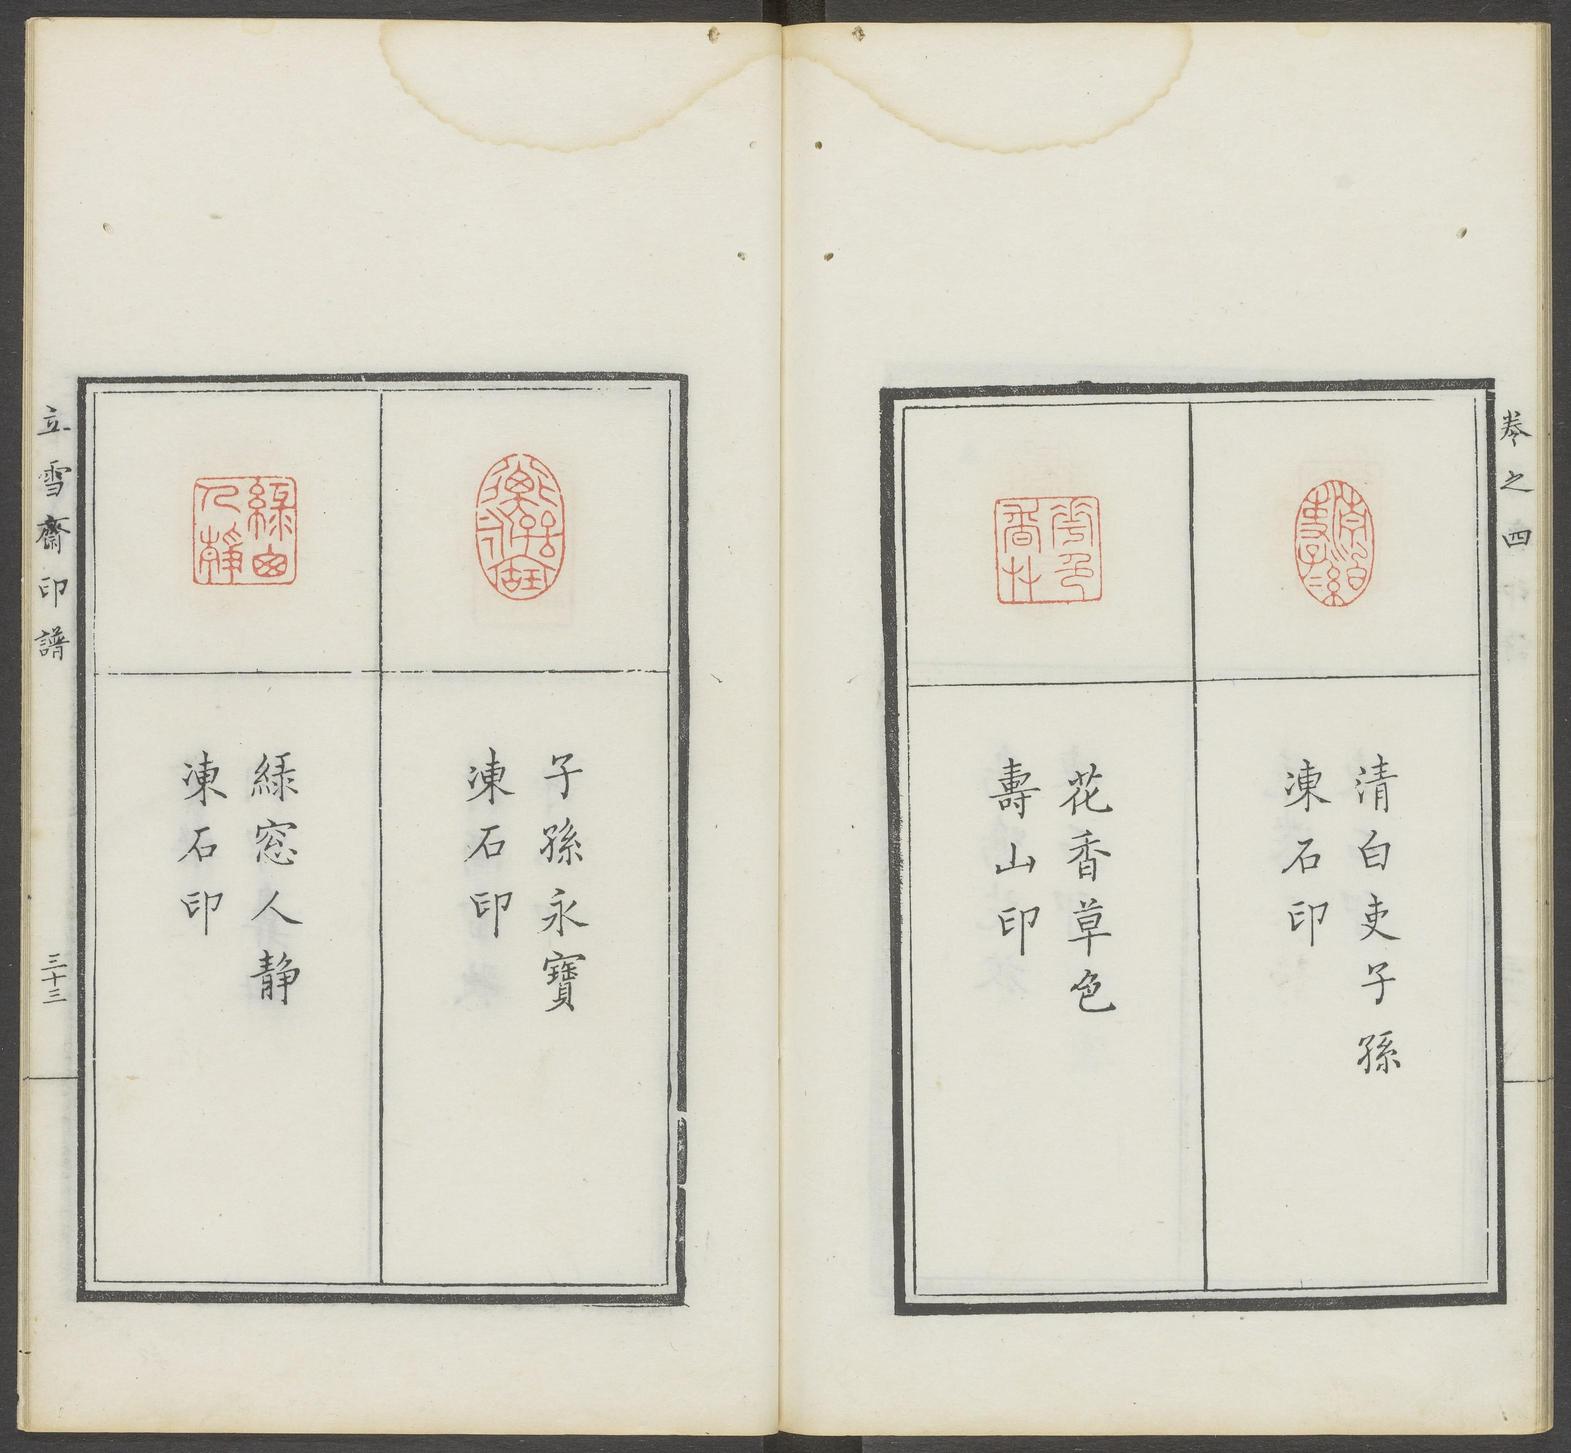 卷之四
清白吏子孫
凍石印
花香草色
壽山印
子孫永寶
凍石印
緑窓人静
凍石印
立雪齋印譜
三十三